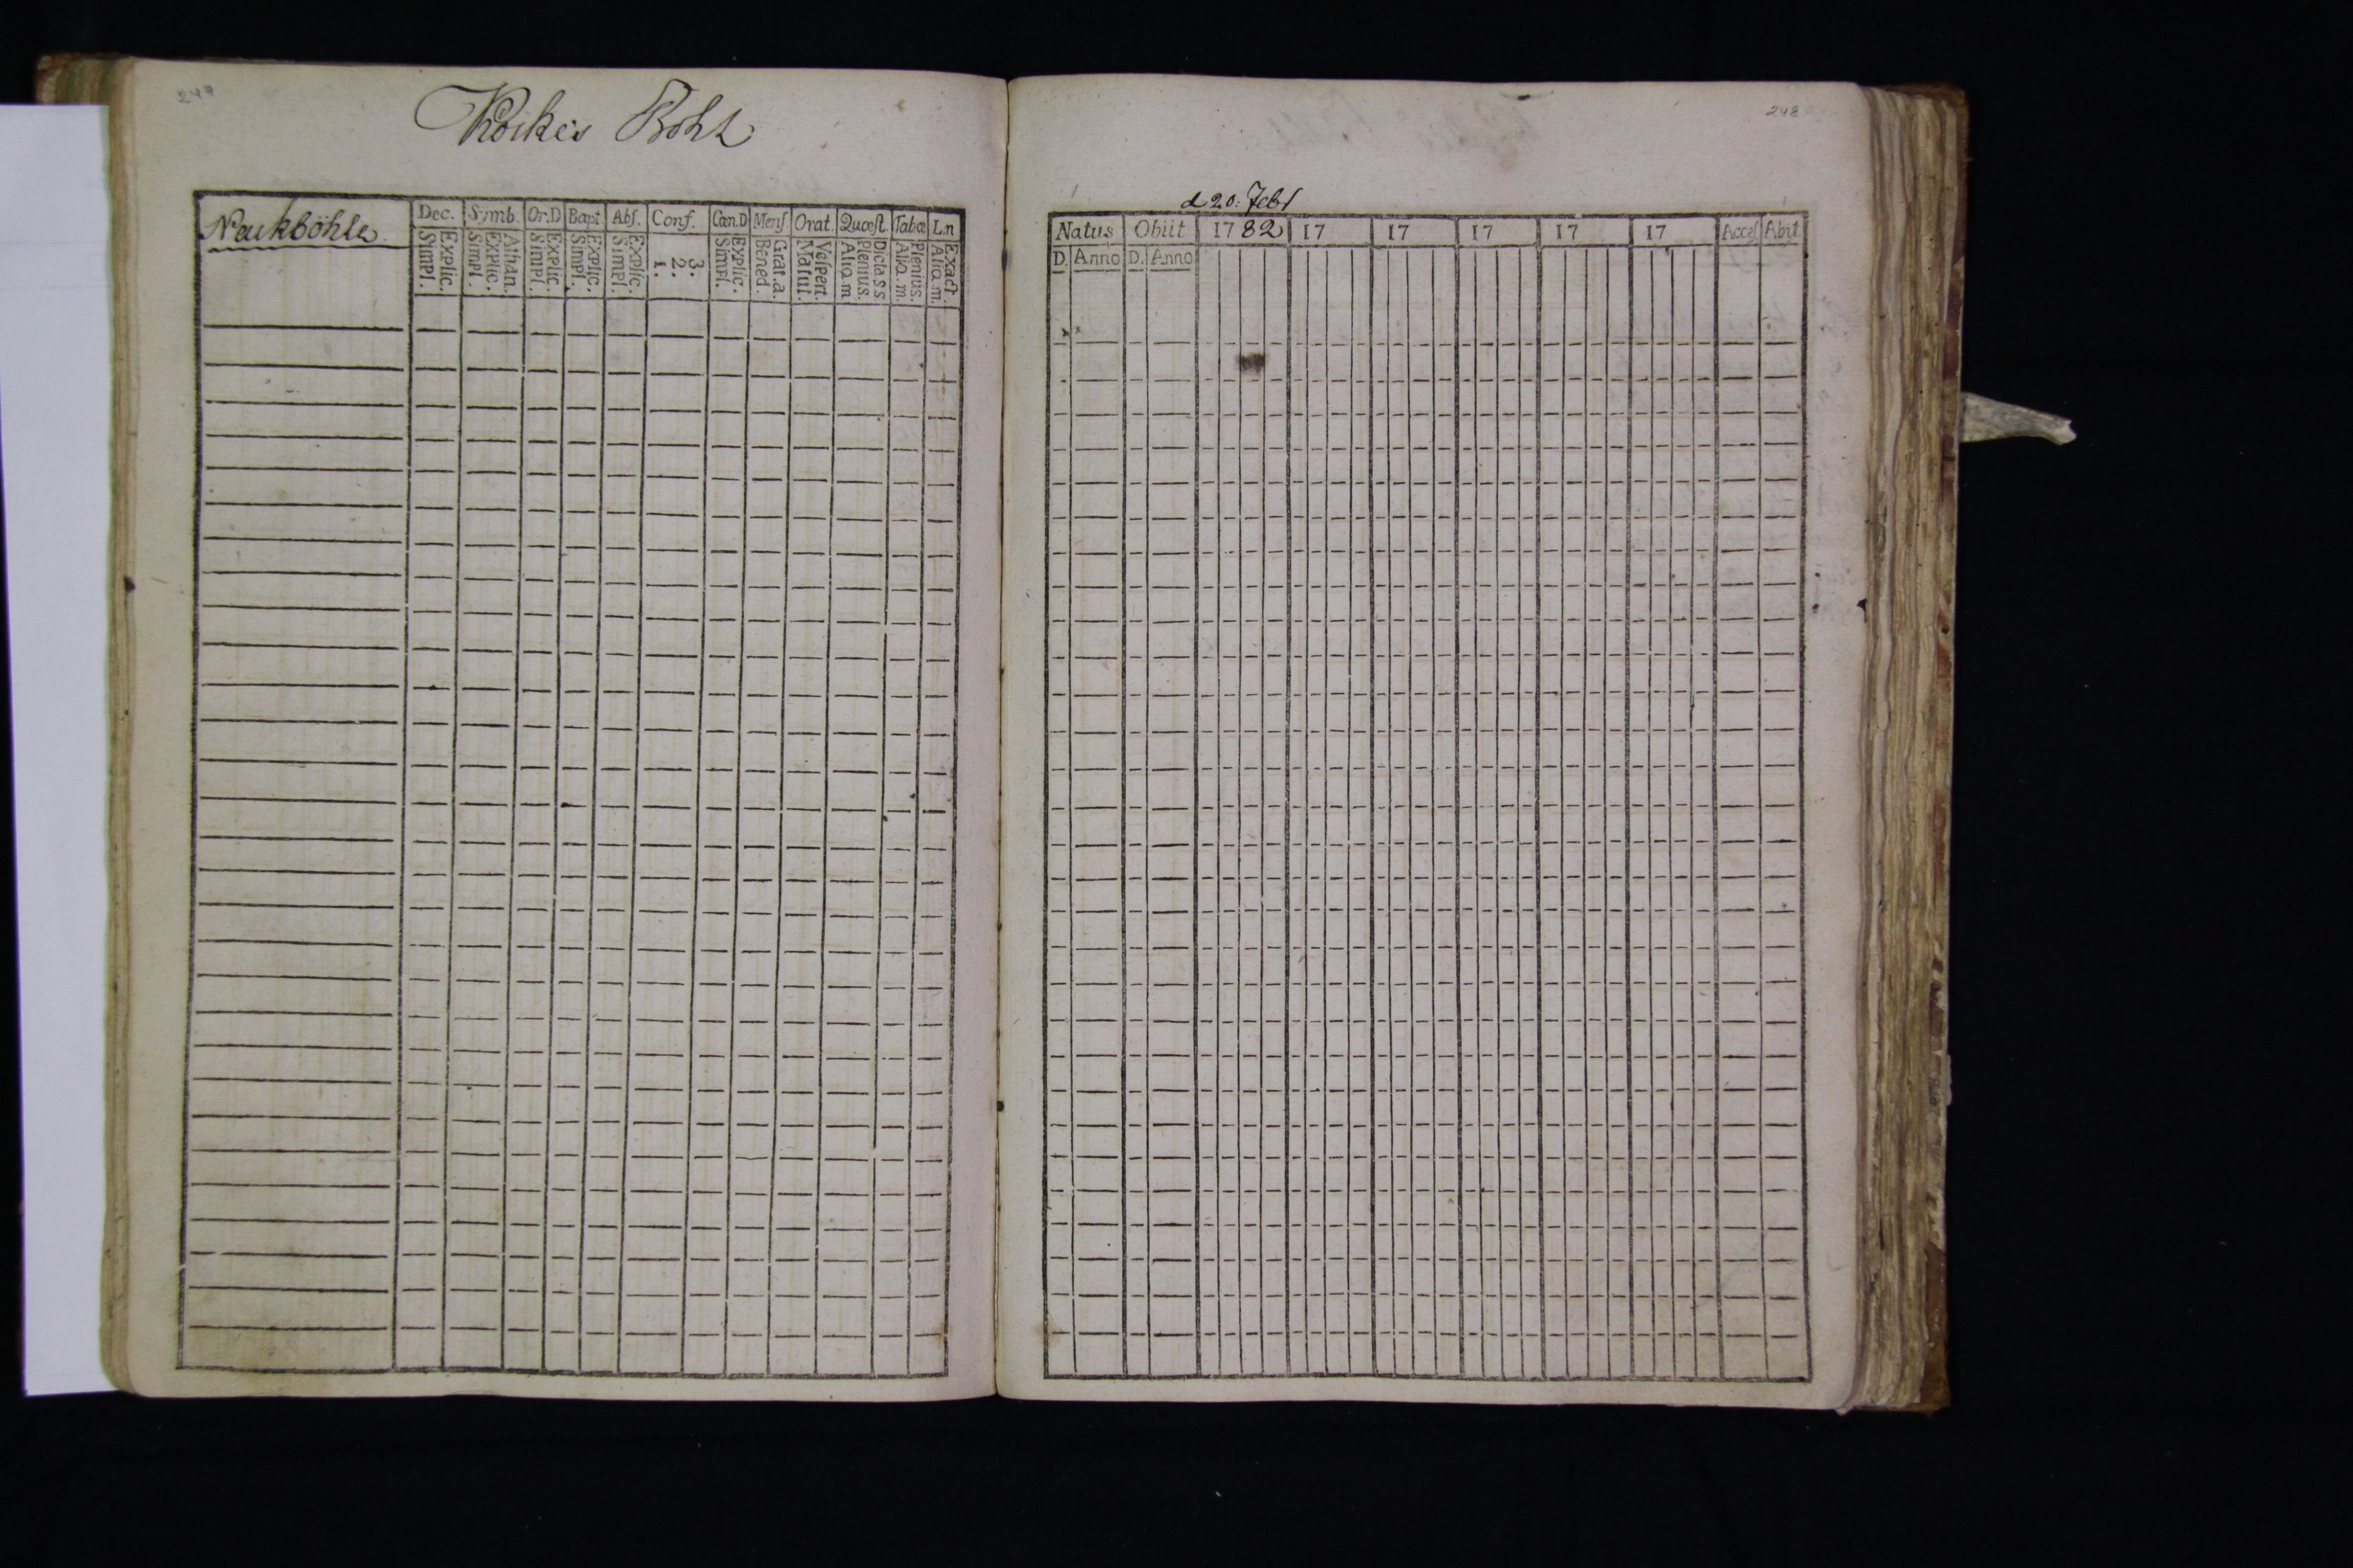 247
Koikeis Bohl
Neukböhle
Dec. Symb. Or.D Bapt. Abs. Conf. Cæn.D Mens Orat. Quæst. Tabæ L.n
Simpl. Explic. Simpl. Explic. Athan. Simpl. Explic. Simpl. Explic. Simpl. Explic. 1. 2. 3. Simpl. Explic. Bened. Grat.a. Matut. Vespert. Aliq.m Plenius. Dicta ss Aliq.m. Plenius. Aliq.m. Exact.
248
d 20: Febr
Natus Obiit 1782 17 17 17 17 17 Acces Abit
D. Anno D. Anno